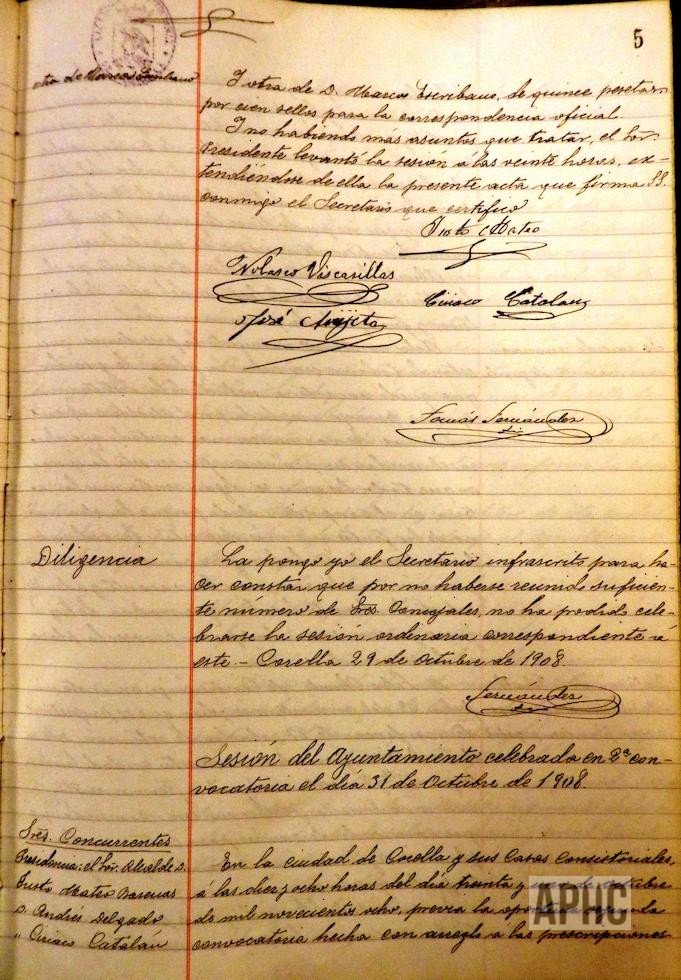 5
cta de Marcos Escribano
Y otra de D. Marcos Escribano, de quince pesetas,
por cien sellos para la correspondencia oficial.
Y no habiendo más asuntos que tratar, el Sor.
Presidente levantó la sesión á las veinte horas, ex-
tendiéndose de ella la presente acta que firma SS.
conmigo el Secretario que certifico
Justo Mateo
Nolasco Viscasillas
Ciriaco Catalán
José
Tomás Fernández
Diligencia
La pongo yo el Secretario infrascrito para ha-
cer constar que por no haberse reunido suficien-
te número de Sres. Concejales, no ha podido cele-
brarse la sesión ordinaria correspondiente á
este.- Corella 29 de Octubre de 1908.
Fernández
Sesión del Ayuntamiento celebrada en 2ª con-
vocatoria el día 31 de Octubre de 1908.
Sres. Concurrentes
Presidencia: el Sor. Alcalde D.
Justo Mateo
D. Andrés Delgado
" Ciriaco Catalán
En la ciudad de Corella y sus Casas Consistoriales,
á las diez y ocho horas del día treinta y uno de Octubre
de mil novecientos ocho, previa la oportuna segunda
convocatoria hecha con arreglo á las prescripciones
APHC